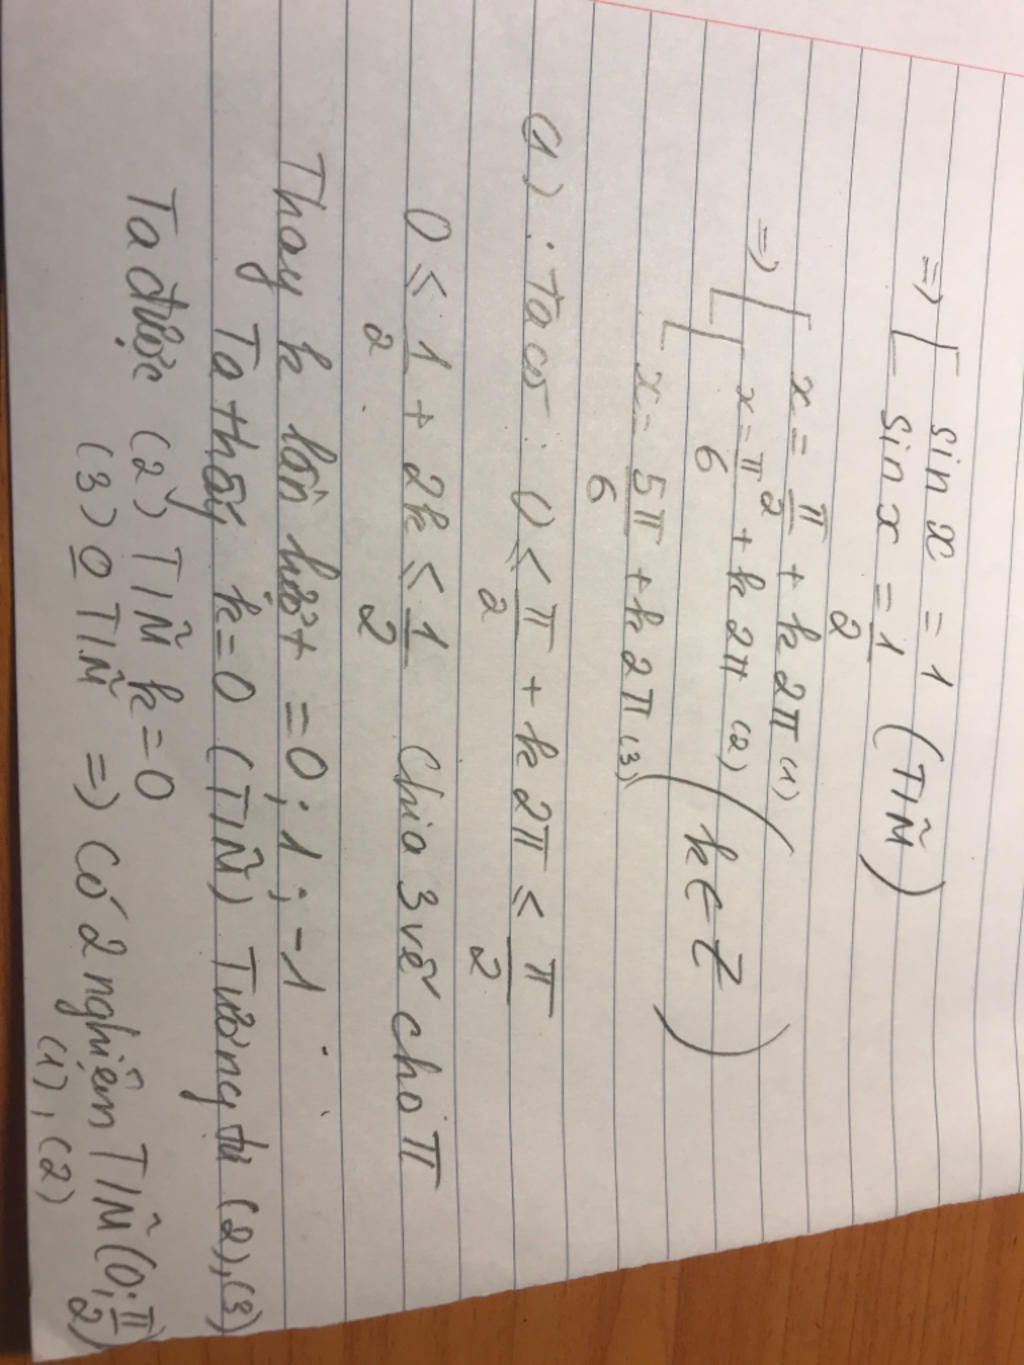 => [ sin x = 1
sin x = 1/2 (TM)
=> [ x = π/2 + k2π (1)
x = π/6 + k2π (2) (k ∈ Z)
x = 5π/6 + k2π (3)
(1): Ta có: 0 ≤ π/2 + k2π ≤ π/2
0 ≤ 1/2 + 2k ≤ 1/2 Chia 3 vế cho π
Thay k lần lượt = 0; 1; -1
Ta thấy k = 0 (TM) Tương tự (2), (3)
Ta được (2) TM k = 0
(3) 0 TM => Có 2 nghiệm TM (0; π/2)
(1), (2)